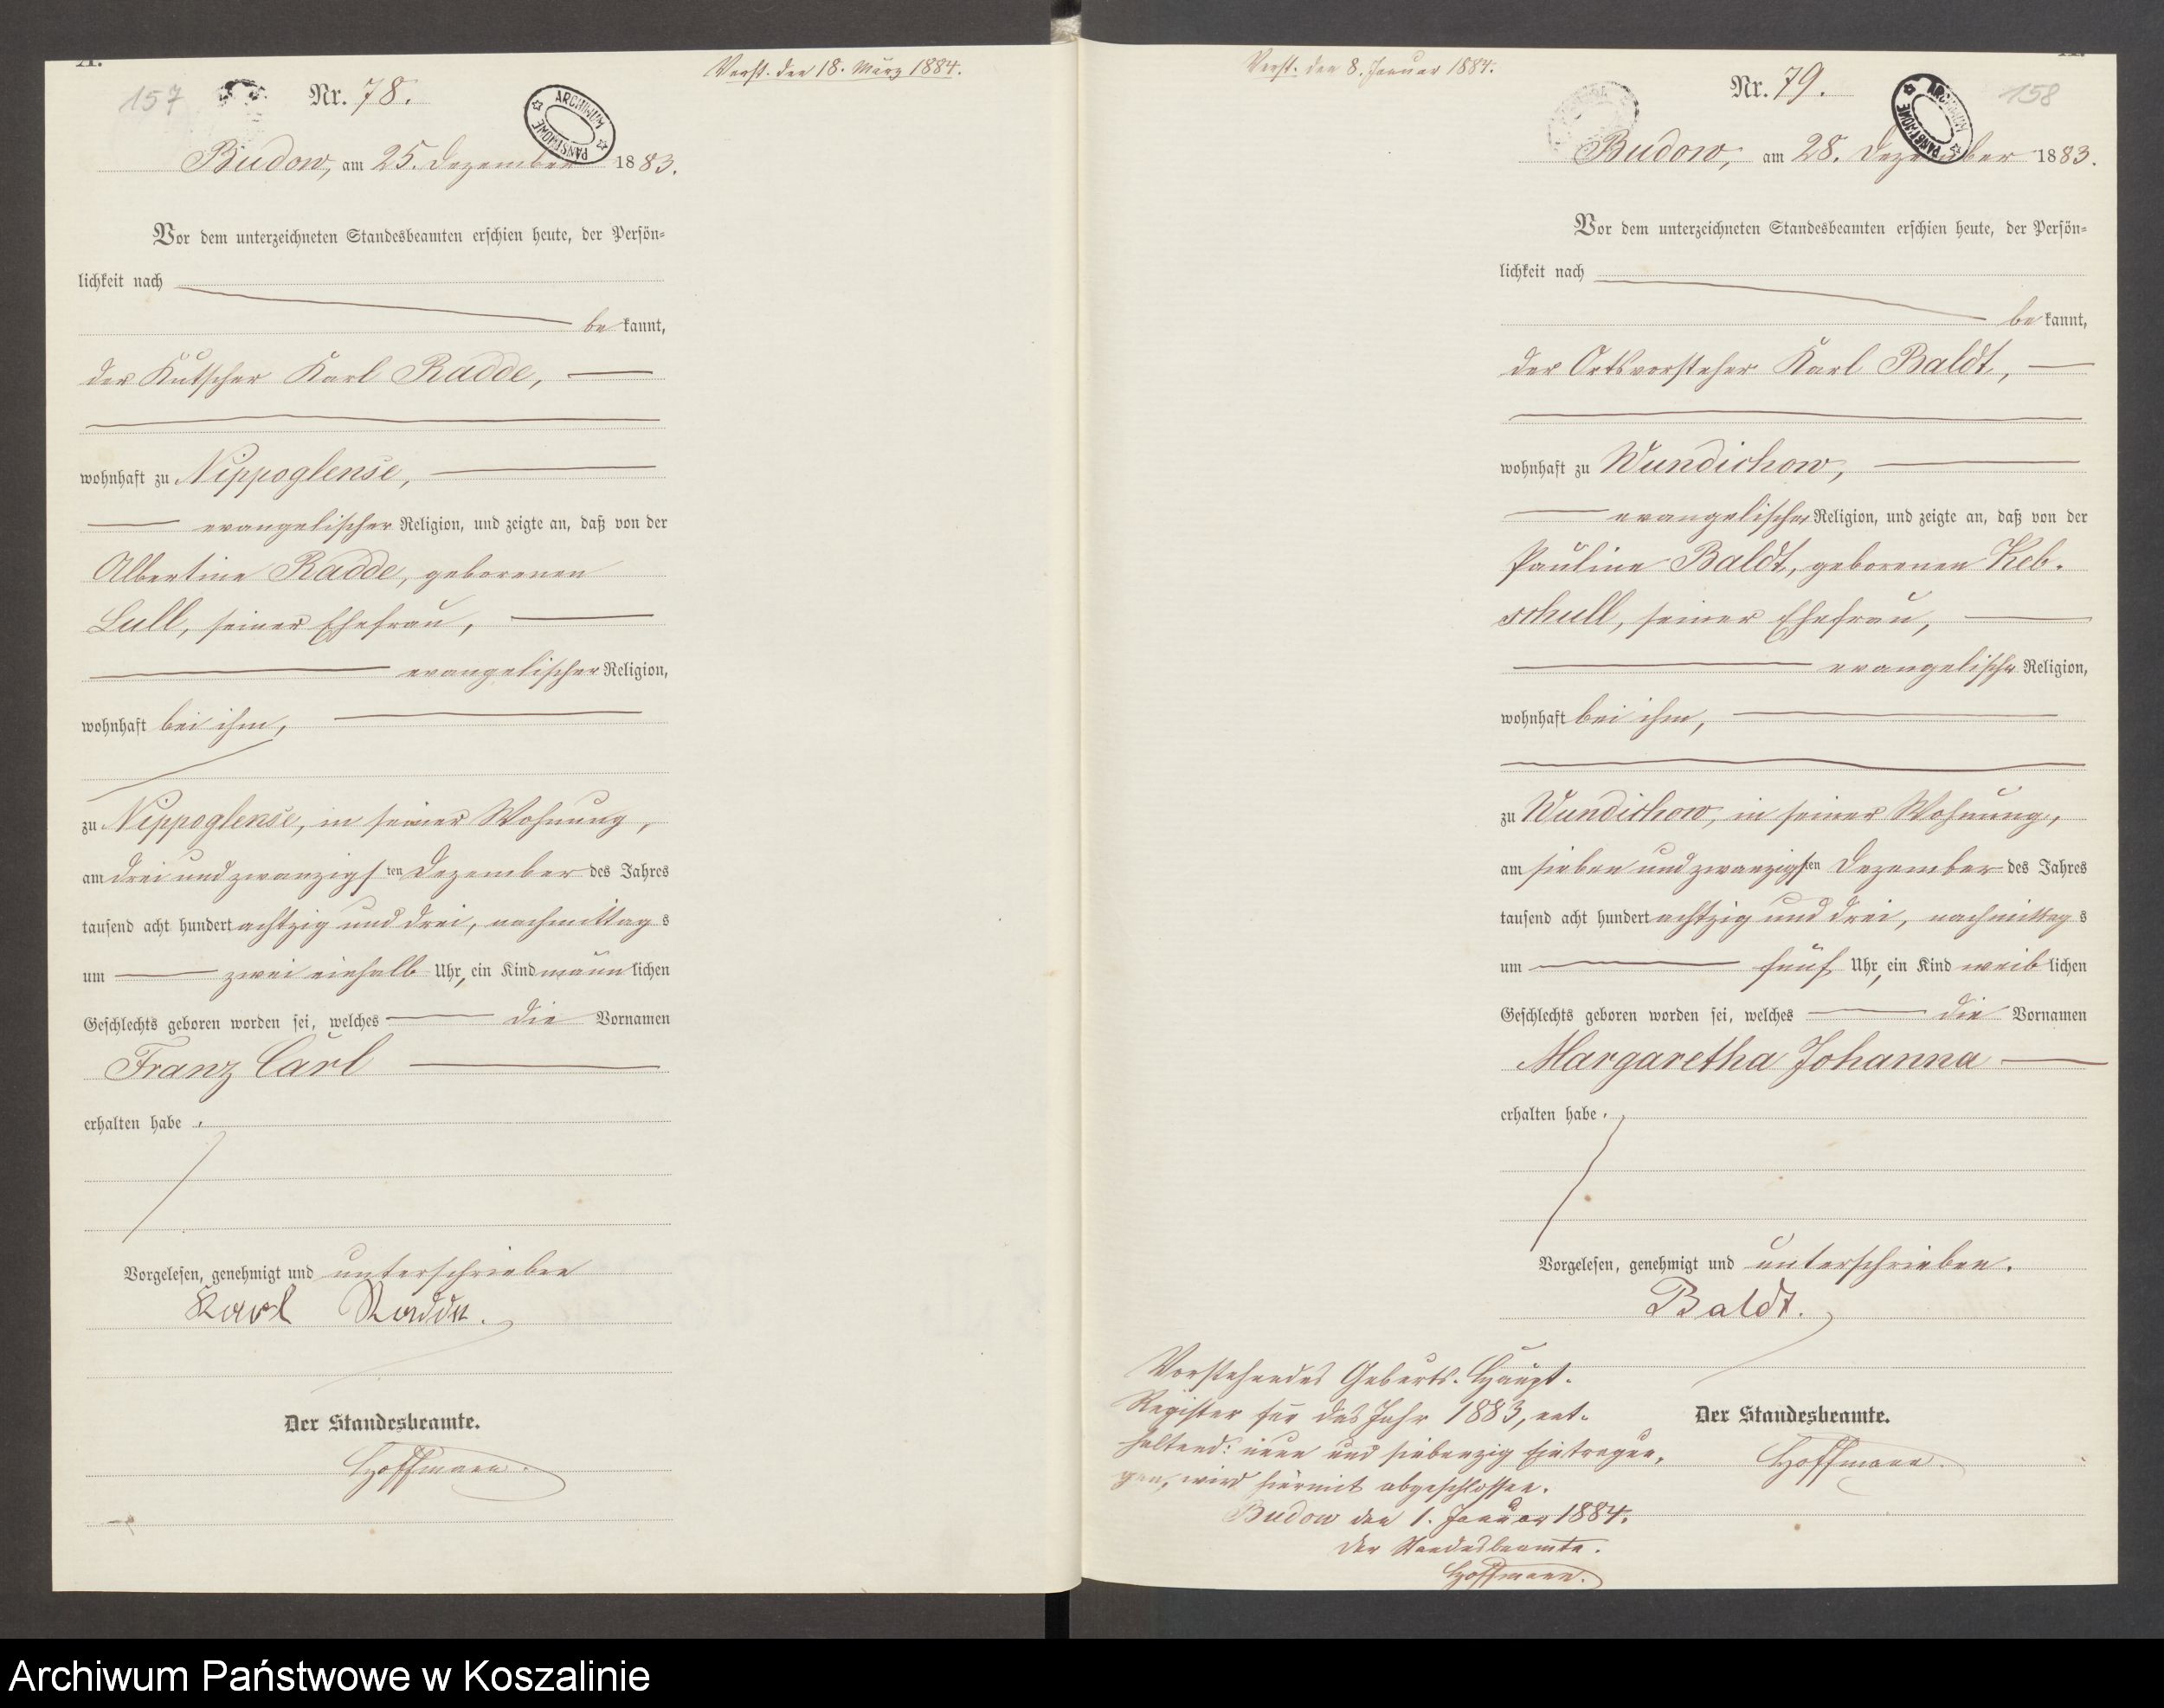 A.
157
Nr. 78.
Verst. den 18. März 1884.
ARCHIWUM PAŃSTWOWE
Budow, am 25. Dezember 1883.
Vor dem unterzeichneten Standesbeamten erschien heute, der Persön-
lichkeit nach
be kannt,
der Kutscher Karl Radde,
wohnhaft zu Nippoglense,
evangelischer Religion, und zeigte an, daß von der
Albertine Radde, geborenen
Lull, seiner Ehefrau,
evangelischer Religion,
wohnhaft bei ihm,
zu Nippoglense, in seiner Wohnung,
am drei und zwanzigsten Dezember des Jahres
tausend acht hundert achtzig und drei, nachmittags
um zwei einhalb Uhr, ein Kind männlichen
Geschlechts geboren worden sei, welches die Vornamen
Franz Carl
erhalten habe.
Vorgelesen, genehmigt und unterschrieben
Karl Radde.
Der Standesbeamte.
Hoffmann.
Verst. den 8. Januar 1884.
Nr. 79.
158
ARCHIWUM PAŃSTWOWE
Budow, am 28. Dezember 1883.
Vor dem unterzeichneten Standesbeamten erschien heute, der Persön-
lichkeit nach
be kannt,
der Ortsvorsteher Karl Baldt,
wohnhaft zu Wundichow,
evangelischer Religion, und zeigte an, daß von der
Pauline Baldt, geborenen Keb-
schull, seiner Ehefrau,
evangelischer Religion,
wohnhaft bei ihm,
zu Wundichow, in seiner Wohnung,
am sieben und zwanzigsten Dezember des Jahres
tausend acht hundert achtzig und drei, nachmittags
um fünf Uhr, ein Kind weiblichen
Geschlechts geboren worden sei, welches die Vornamen
Margaretha Johanna
erhalten habe.
Vorgelesen, genehmigt und unterschrieben.
Baldt.
Der Standesbeamte.
Hoffmann.
Vorstehendes Geburts-Haupt-
Register für das Jahr 1883, ent-
haltend: neun und siebenzig Eintragun-
gen, wird hiermit abgeschlossen.
Budow den 1. Januar 1884.
Der Standesbeamte.
Hoffmann.
Archiwum Państwowe w Koszalinie